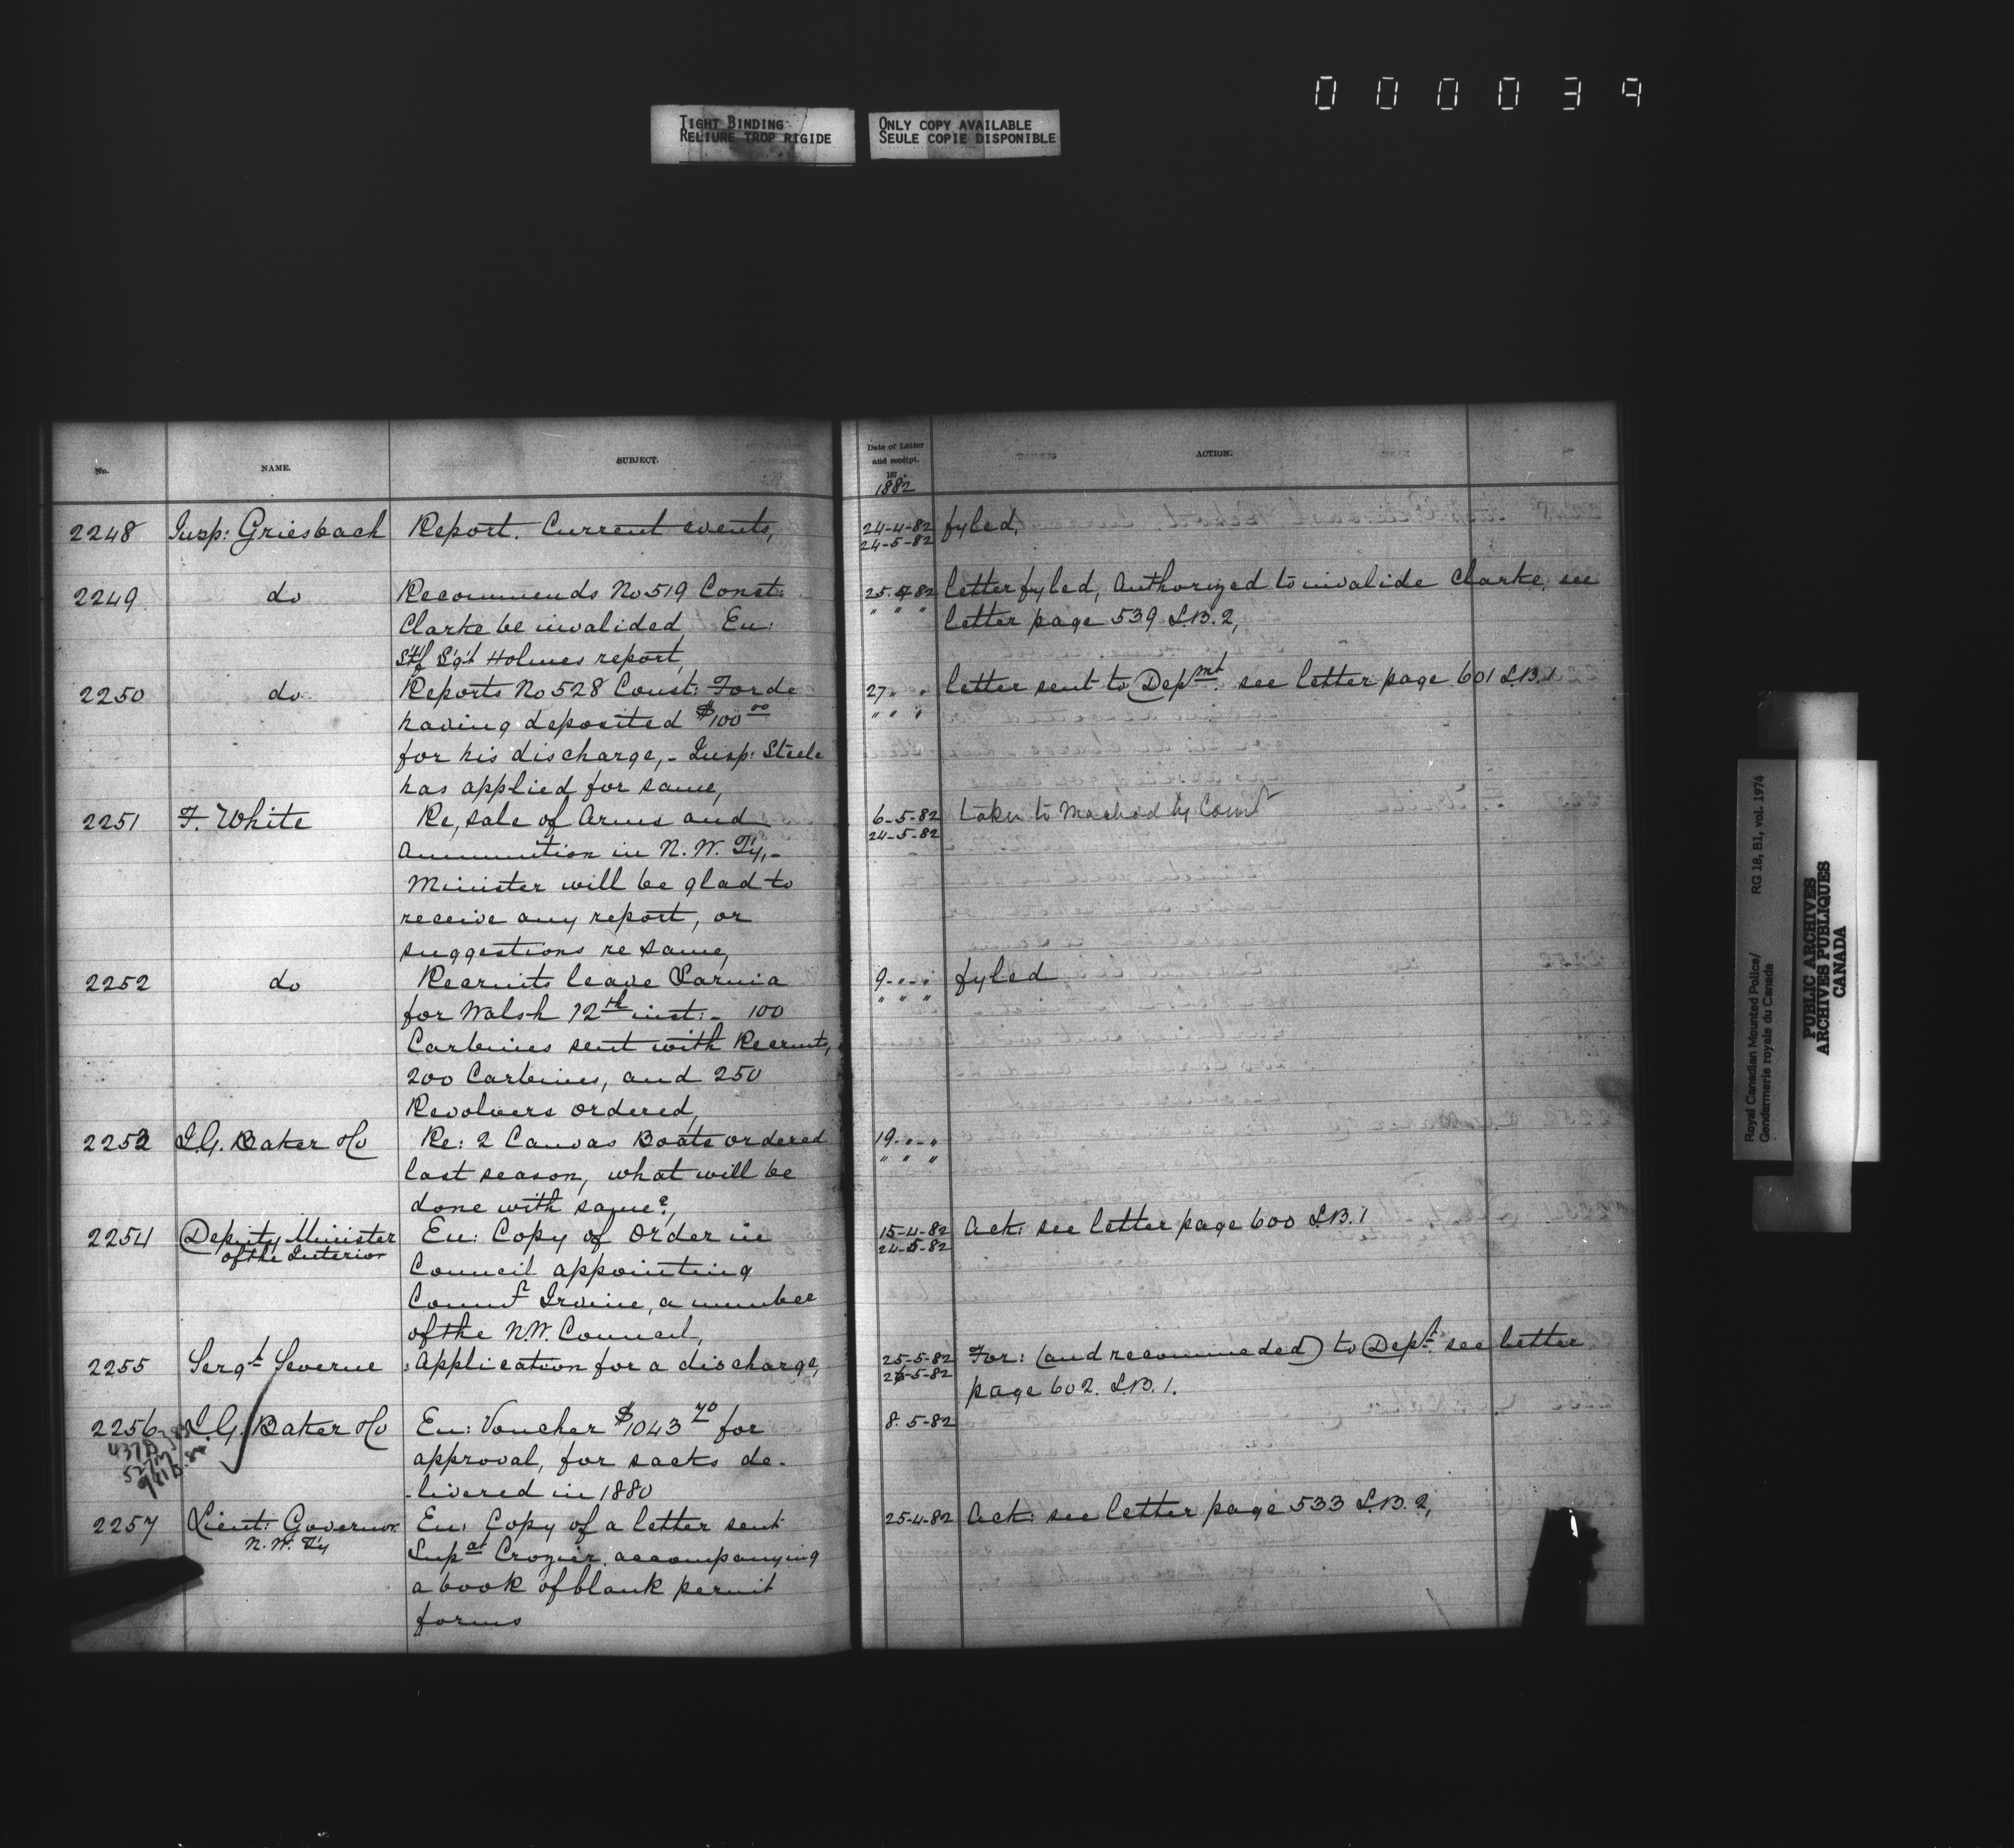 000039
TIGHT BINDING
RELIURE TROP RIGIDE
ONLY COPY AVAILABLE
SEULE COPIE DISPONIBLE
No.
NAME.
SUBJECT.
Date of Letter
and receipt.
187 .
1882
ACTION.
2248 Insp: Griesbach Report. Current events, 24-4-82 fyled,
24-5-82
2249 do Recommends No 519 Const: 25-4-82 letter fyled, Authorized to invalide Clarke, see
Clarke be invalided En: " " " letter page 539 L.B. 2,
Stf Sgt Holmes report,
2250 do Reports No 528 Const: Forde 27 " " letter sent to Depmt. see letter page 601 L.B. 1
having deposited $100 00 " " "
for his discharge, - Insp: Steele
has applied for same,
2251 F. White Re, sale of Arms and 6-5-82 taken to Macleod by Comr
24-5-82
Ammunition in N. W. Ty, -
Minister will be glad to
receive any report, or
suggestions re same,
2252 do Recruits leave Sarnia 9 - " - " fyled
for Walsh 12th inst: - 100 " " "
Carbines sent with Recruits,
200 Carbines, and 250
Revolvers ordered,
2253 I.G. Baker & Co Re: 2 Canvas Boats ordered 19 - " - "
last season, what will be " " "
done with same?,
2254 Deputy Minister En: Copy of Order in 15-4-82 Ack: see letter page 600 L.B. 1
of the Interior 24-5-82
Council appointing
Commr Irvine, a member
of the N.W. Council,
2255 Sergt Severne Application for a discharge, 25-5-82 For: (and recommended) to Dept. see letter
25-5-82 page 602. L.B. 1.
2256 I.G. Baker & Co En: Voucher $1043 70 for 8. 5-82
approval, for sacks de-
-livered in 1880
2257 Lieut: Governor En: Copy of a letter sent 25-4-82 Ack: see letter page 533 L.B. 2,
N. W. Ty
Supdt Crozier, accompanying
a book of blank permit
forms
Royal Canadian Mounted Police/
Gendarmerie royale du Canada
RG 18, B1, vol. 1974
PUBLIC ARCHIVES
ARCHIVES PUBLIQUES
CANADA